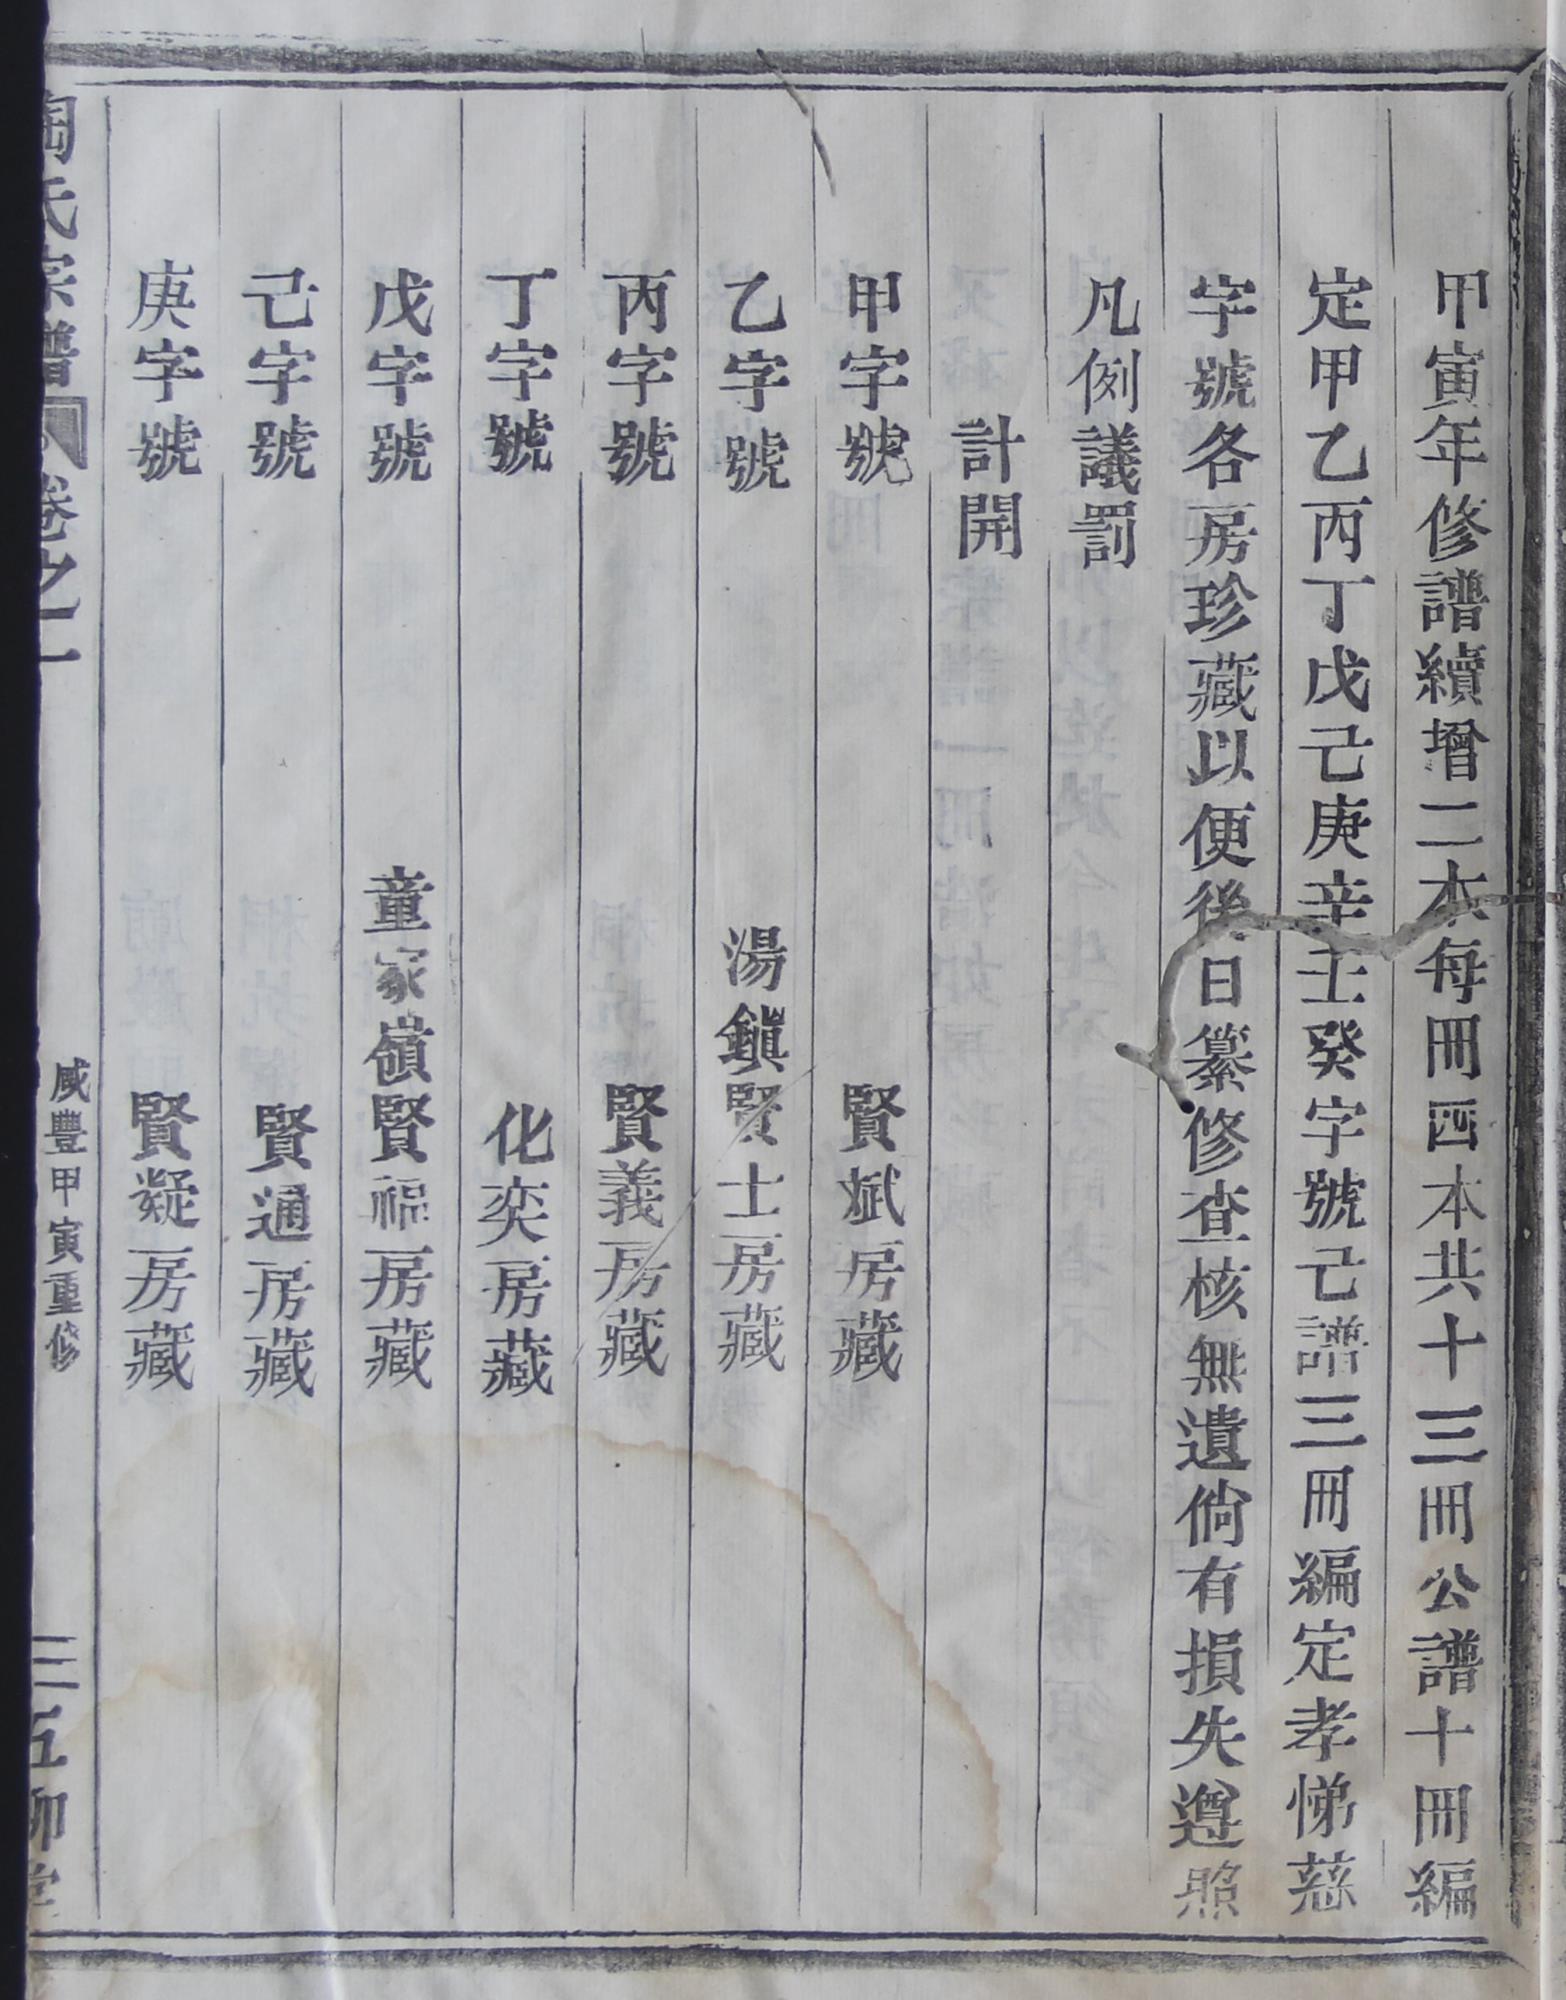 甲寅年修譜續增二本每冊四本共十三冊公譜十冊編
定甲乙丙丁戊己庚辛壬癸字號己譜三冊編定孝悌慈
字號各房珍藏以便後日纂修查核無遺倘有損失遵照
凡例議罰
計開
甲字號 賢斌房藏
乙字號 湯鎭賢士房藏
丙字號 賢義房藏
丁字號 化奕房藏
戊字號 童家嶺賢福房藏
己字號 賢通房藏
庚字號 賢凝房藏
陶氏宗譜 卷之一 咸豐甲寅重修 三五柳堂